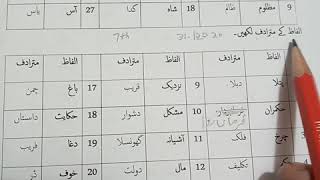 9 مظلوم ظالم 18 شاہ گدا 27 آس یاس
7th 31-12-2020
الفاظ کے مترادف لکھیں۔
الفاظ مترادف الفاظ مترادف الفاظ مترادف
دبلا 9 نزدیک قریب 17 باغ چمن
حکمران 10 مشکل دشوار 18 حکایت داستاں
چرخ فلک 11 آشیانہ گھونسلا 19 دغا فریب
تکلیف 12 مال دولت 20 خوف ڈر